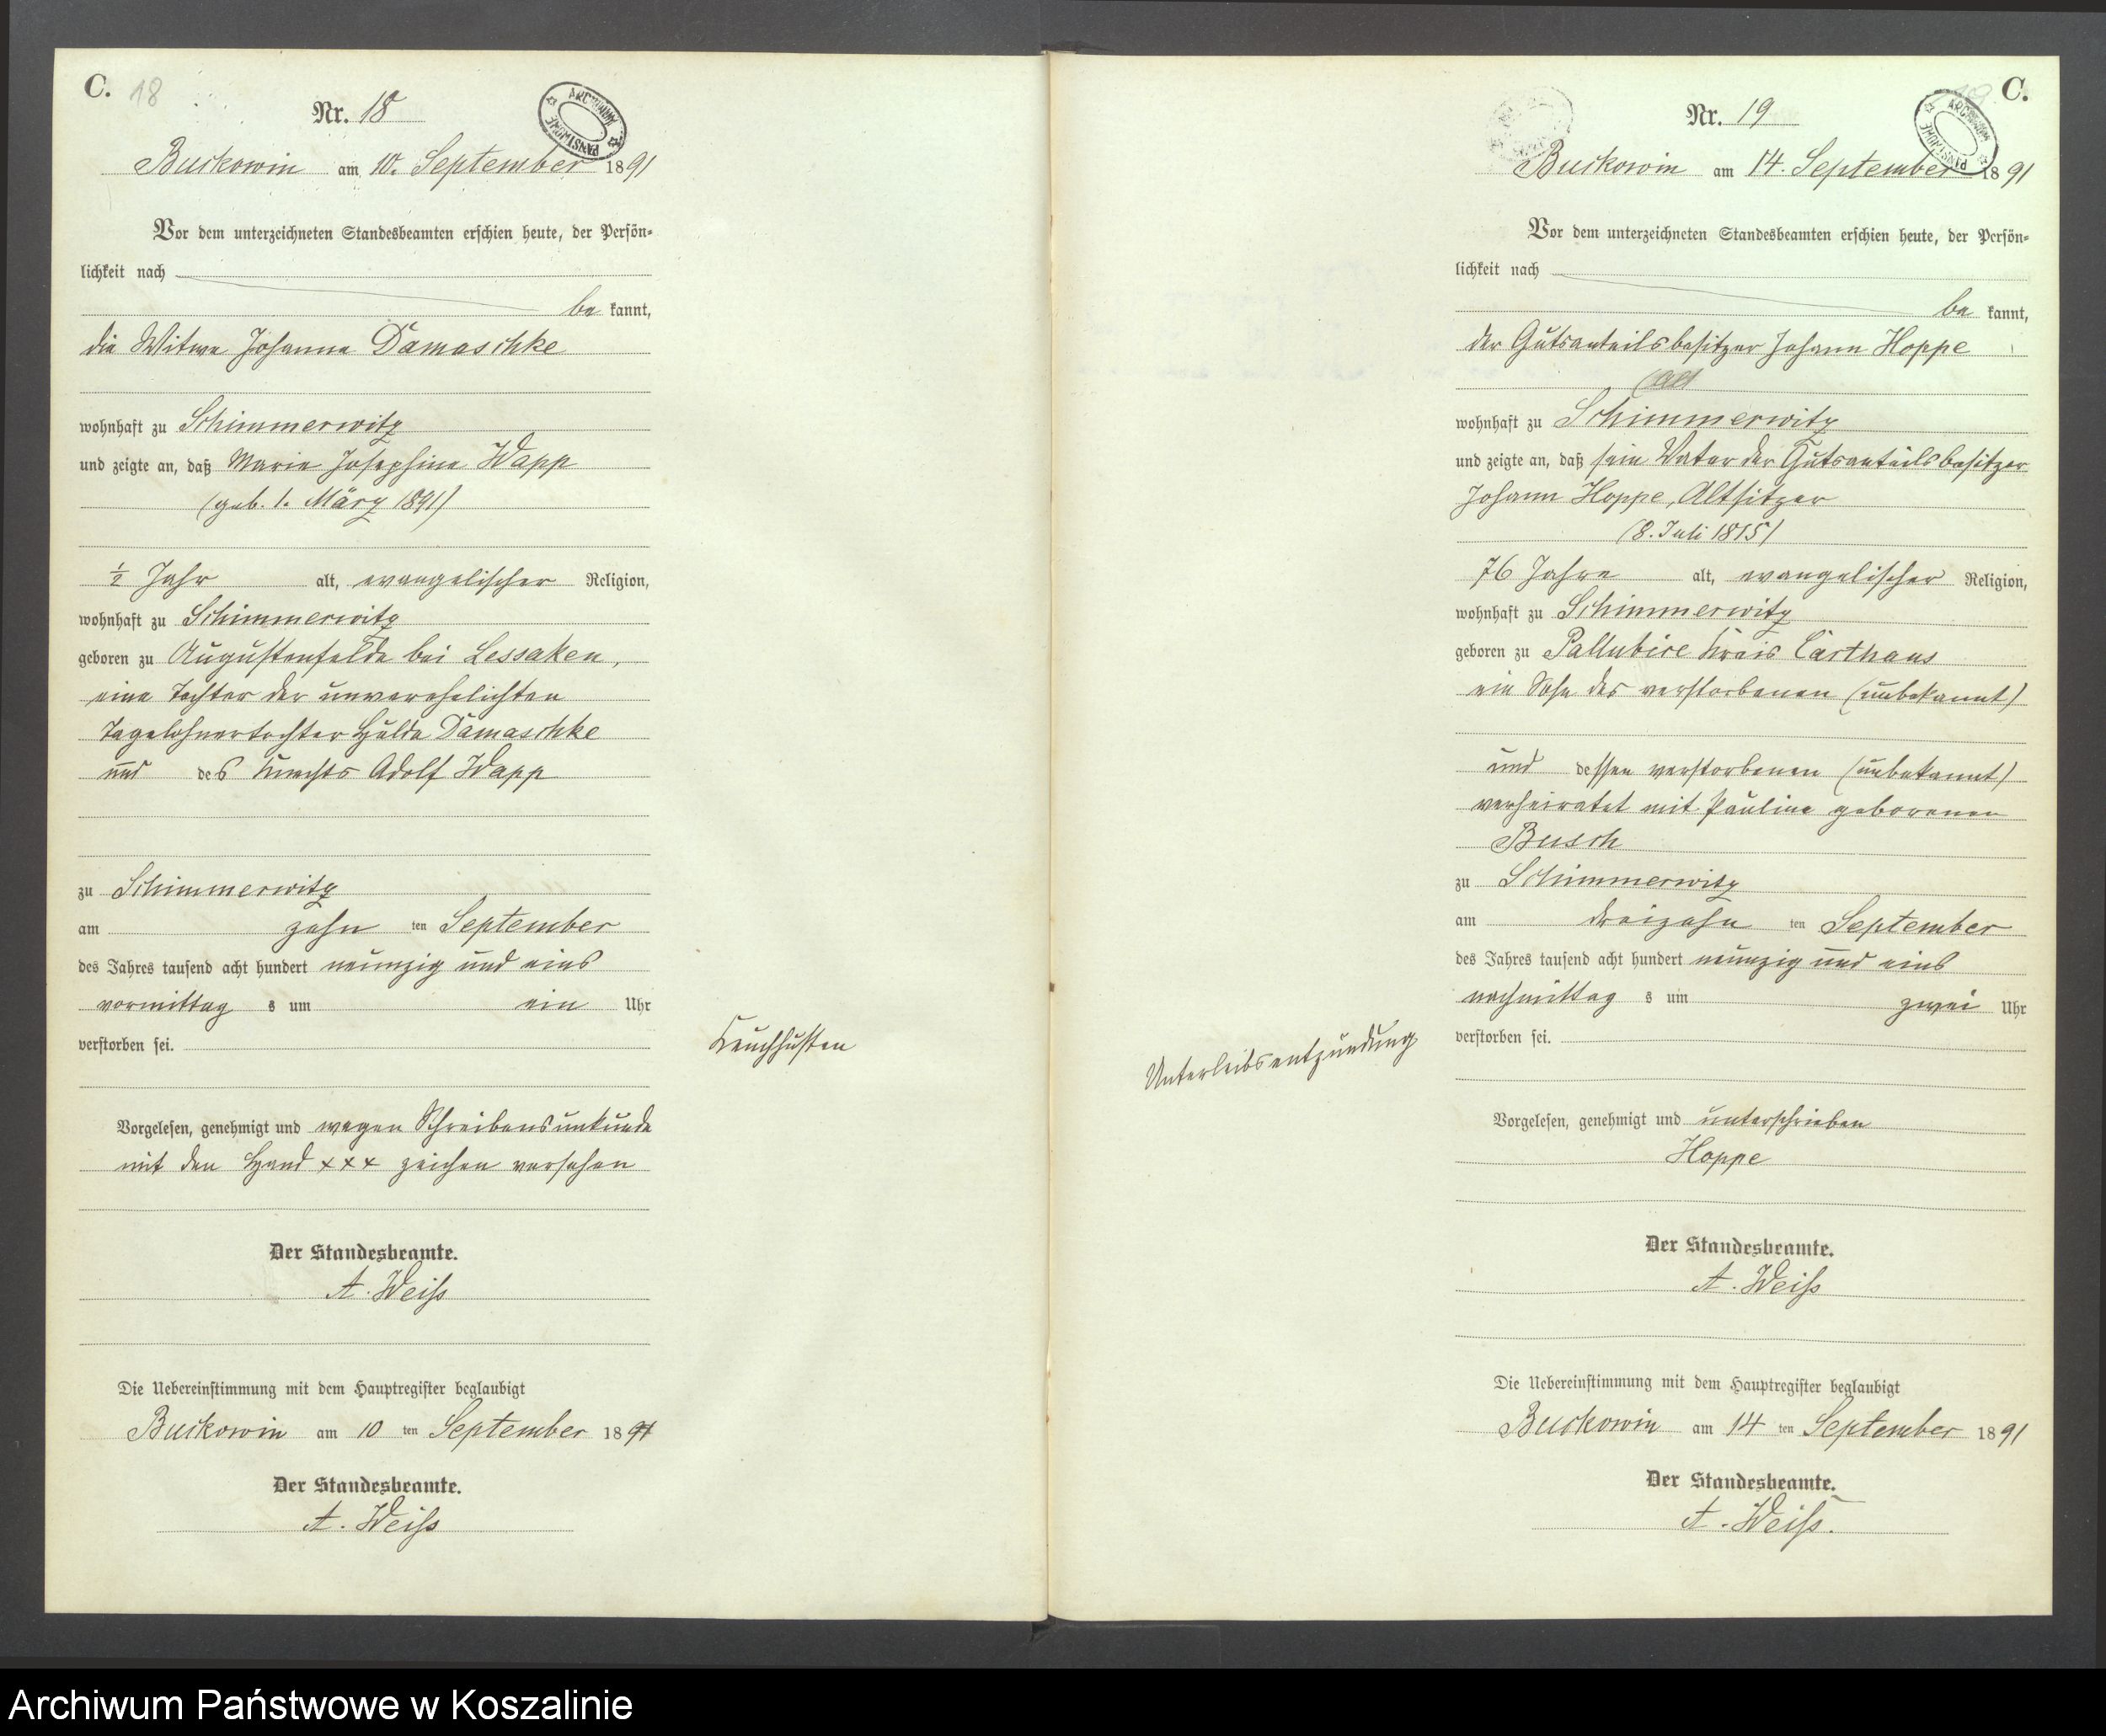 C. 18
Nr. 18
ARCHIWUM PAŃSTWOWE
Buckowin am 10. September 1891
Vor dem unterzeichneten Standesbeamten erschien heute, der Persön=
lichkeit nach
be kannt,
die Witwe Johanna Damaschke
wohnhaft zu Schimmerwitz
und zeigte an, daß Marie Josephine Wapp
(geb. 1. März 1891)
½ Jahr alt, evangelischer Religion,
wohnhaft zu Schimmerwitz
geboren zu Augustenfelde bei Lessaken,
eine Tochter der unverehelichten
Tagelohnertochter Hulda Damaschke
und des Knechts Adolf Wapp
zu Schimmerwitz
am zehn ten September
des Jahres tausend acht hundert neunzig und eins
vormittag s um ein Uhr
verstorben sei.
Keuchhusten
Vorgelesen, genehmigt und wegen Schreibensunkunde
mit den Hand xxx zeichen versehen
Der Standesbeamte.
A. Weiß
Die Uebereinstimmung mit dem Hauptregister beglaubigt
Buckowin am 10 ten September 1891
Der Standesbeamte.
A. Weiß
C.
Nr. 19
ARCHIWUM PAŃSTWOWE
Buckowin am 14. September 1891
Vor dem unterzeichneten Standesbeamten erschien heute, der Persön=
lichkeit nach
be kannt,
der Gutsanteilsbesitzer Johann Hoppe
wohnhaft zu Schimmerwitz
und zeigte an, daß sein Vater der Gutsanteilsbesitzer
Johann Hoppe, Altsitzer
(8. Juli 1815)
76 Jahre alt, evangelischer Religion,
wohnhaft zu Schimmerwitz
geboren zu Pallubice Kreis Carthaus
ein Sohn des verstorbenen (unbekannt)
und dessen verstorbenen (unbekannt)
verheiratet mit Pauline geborenen
Busch
zu Schimmerwitz
am dreizehn ten September
des Jahres tausend acht hundert neunzig und eins
nachmittag s um zwei Uhr
verstorben sei.
Unterleibsentzündung
Vorgelesen, genehmigt und unterschrieben
Hoppe
Der Standesbeamte.
A. Weiß
Die Uebereinstimmung mit dem Hauptregister beglaubigt
Buckowin am 14 ten September 1891
Der Standesbeamte.
A. Weiß.
Archiwum Państwowe w Koszalinie